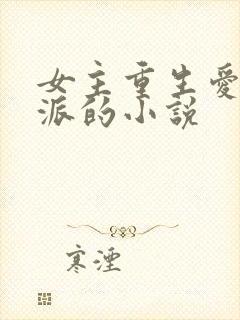 女主重生愛
派的小說
寒湮